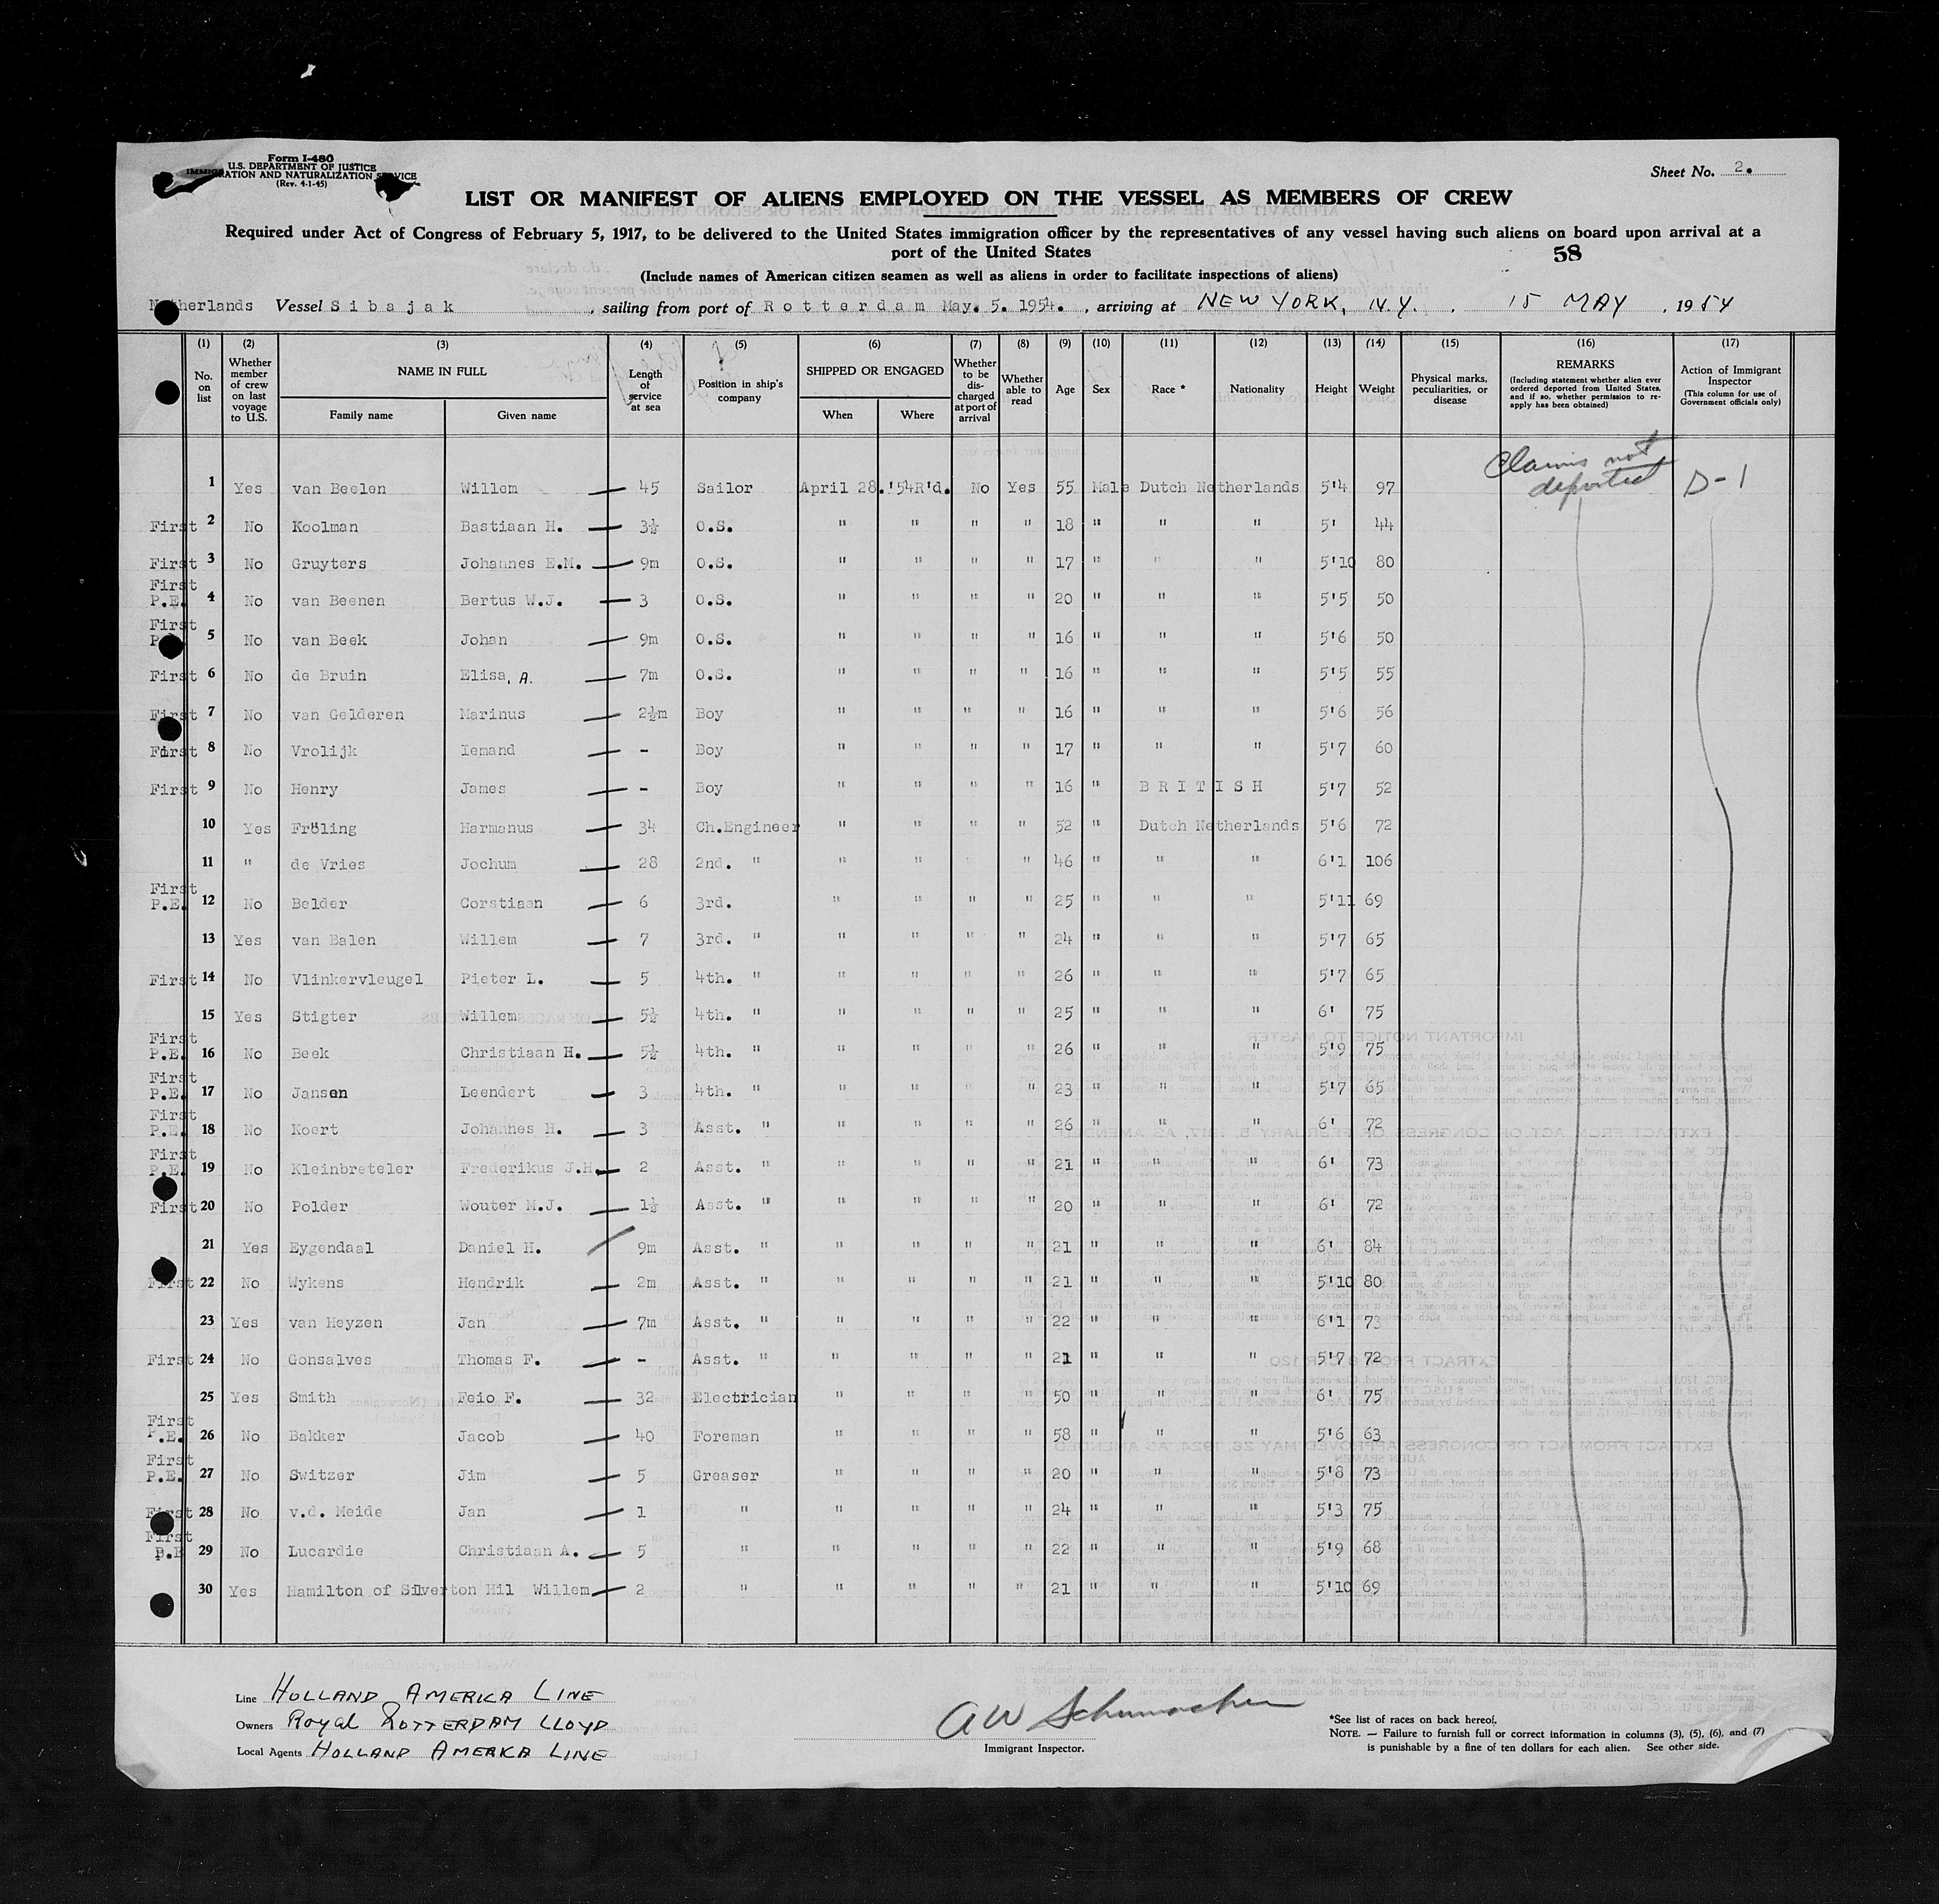 Form I-480
U.S. DEPARTMENT OF JUSTICE
IMMIGRATION AND NATURALIZATION SERVICE
(Rev. 4-1-45)
Sheet No. 2.
LIST OR MANIFEST OF ALIENS EMPLOYED ON THE VESSEL AS MEMBERS OF CREW
Required under Act of Congress of February 5, 1917, to be delivered to the United States immigration officer by the representatives of any vessel having such aliens on board upon arrival at a
port of the United States
58
(Include names of American citizen seamen as well as aliens in order to facilitate inspections of aliens)
Netherlands Vessel Sibajak, sailing from port of Rotterdam May. 5. 1954., arriving at NEW YORK, N.Y., 15 MAY, 1954
(1) (2) (3) (4) (5) (6) (7) (8) (9) (10) (11) (12) (13) (14) (15) (16) (17)
No. on list | Whether member of crew on last voyage to U.S. | NAME IN FULL Family name Given name | Length of service at sea | Position in ship's company | SHIPPED OR ENGAGED When Where | Whether to be discharged at port of arrival | Whether able to read | Age | Sex | Race * | Nationality | Height | Weight | Physical marks, peculiarities, or disease | REMARKS (Including statement whether alien ever ordered deported from United States, and if so, whether permission to reapply has been obtained) | Action of Immigrant Inspector (This column for use of Government officials only)
Claims not deported D-1
1 Yes van Beelen Willem — 45 Sailor April 28.'54 R'd. No Yes 55 Male Dutch Netherlands 5'4 97
First 2 No Koolman Bastiaan H. — 3½ O.S. " " " " 18 " " " 5' 44
First 3 No Gruyters Johannes E.M. — 9m O.S. " " " " 17 " " " 5'10 80
First P.E. 4 No van Beenen Bertus W.J. — 3 O.S. " " " " 20 " " " 5'5 50
First P.E. 5 No van Beek Johan — 9m O.S. " " " " 16 " " " 5'6 50
First 6 No de Bruin Elisa, A. — 7m O.S. " " " " 16 " " " 5'5 55
First 7 No van Gelderen Marinus — 2½m Boy " " " " 16 " " " 5'6 56
First 8 No Vrolijk Iemand — - Boy " " " " 17 " " " 5'7 60
First 9 No Henry James — - Boy " " " " 16 " BRITISH 5'7 52
10 Yes Fröling Harmanus — 34 Ch.Engineer " " " " 52 " Dutch Netherlands 5'6 72
11 " de Vries Jochum — 28 2nd. " " " " " 46 " " " 6'1 106
First P.E. 12 No Belder Corstiaan — 6 3rd. " " " " 25 " " " 5'11 69
13 Yes van Balen Willem — 7 3rd. " " " " " 24 " " " 5'7 65
First 14 No Vlinkervleugel Pieter L. — 5 4th. " " " " " 26 " " " 5'7 65
15 Yes Stigter Willem — 5½ 4th. " " " " " 25 " " " 6' 75
First P.E. 16 No Beek Christiaan H. — 5½ 4th. " " " " " 26 " " " 5'9 75
First P.E. 17 No Jansen Leendert — 3 4th. " " " " " 23 " " " 5'7 65
First P.E. 18 No Koert Johannes H. — 3 Asst. " " " " " 26 " " " 6' 72
First P.E. 19 No Kleinbreteler Frederikus J.H. — 2 Asst. " " " " " 21 " " " 6' 73
First 20 No Polder Wouter M.J. — 1½ Asst. " " " " " 20 " " " 6' 72
21 Yes Eygendaal Daniel H. / 9m Asst. " " " " " 21 " " " 6' 84
First 22 No Wykens Hendrik — 2m Asst. " " " " " 21 " " " 5'10 80
23 Yes van Heyzen Jan — 7m Asst. " " " " " 22 " " " 6'1 73
First 24 No Gonsalves Thomas F. — - Asst. " " " " " 21 " " " 5'7 72
25 Yes Smith Feio F. — 32 Electrician " " " " 50 " " " 6' 75
First P.E. 26 No Bakker Jacob — 40 Foreman " " " " 58 " " " 5'6 63
First P.E. 27 No Switzer Jim — 5 Greaser " " " " 20 " " " 5'8 73
First 28 No v.d. Meide Jan — 1 " " " " " 24 " " " 5'3 75
First P.E 29 No Lucardie Christiaan A. — 5 " " " " " 22 " " " 5'9 68
30 Yes Hamilton of Silverton Hil Willem — 2 " " " " " 21 " " " 5'10 69
Line HOLLAND AMERICA LINE
Owners Royal ROTTERDAM LLOYD
Local Agents HOLLAND AMERKA LINE
AW Schumacher
Immigrant Inspector.
*See list of races on back hereof.
NOTE. — Failure to furnish full or correct information in columns (3), (5), (6), and (7)
is punishable by a fine of ten dollars for each alien. See other side.